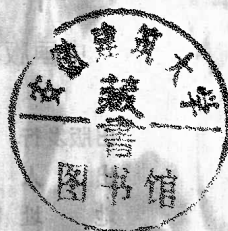 安徽 大学
藏書
图书馆